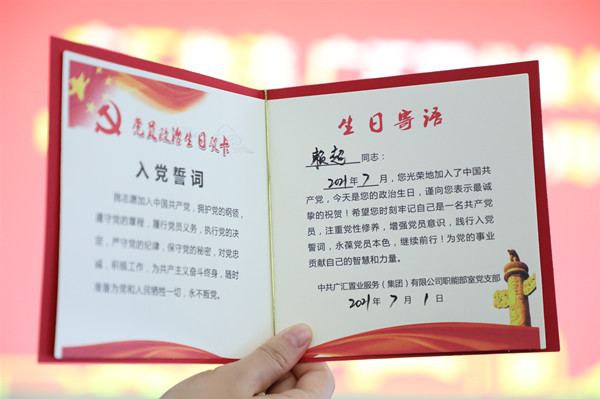 党员政治生日贺卡
入党誓词
我志愿加入中国共产党，拥护党的纲领，
遵守党的章程，履行党员义务，执行党的决
定，严守党的纪律，保守党的秘密，对党忠
诚，积极工作，为共产主义奋斗终身，随时
准备为党和人民牺牲一切，永不叛党。
生日寄语
同志：
2021年7月，您光荣地加入了中国共
产党，今天是您的政治生日，谨向您表示最诚
挚的祝贺！希望您时刻牢记自己是一名共产党
员，注重党性修养，增强党员意识，践行入党
誓词，永葆党员本色，继续前行！为党的事业
贡献自己的智慧和力量。
中共广汇置业服务（集团）有限公司职能部室党支部
2021年7月1日